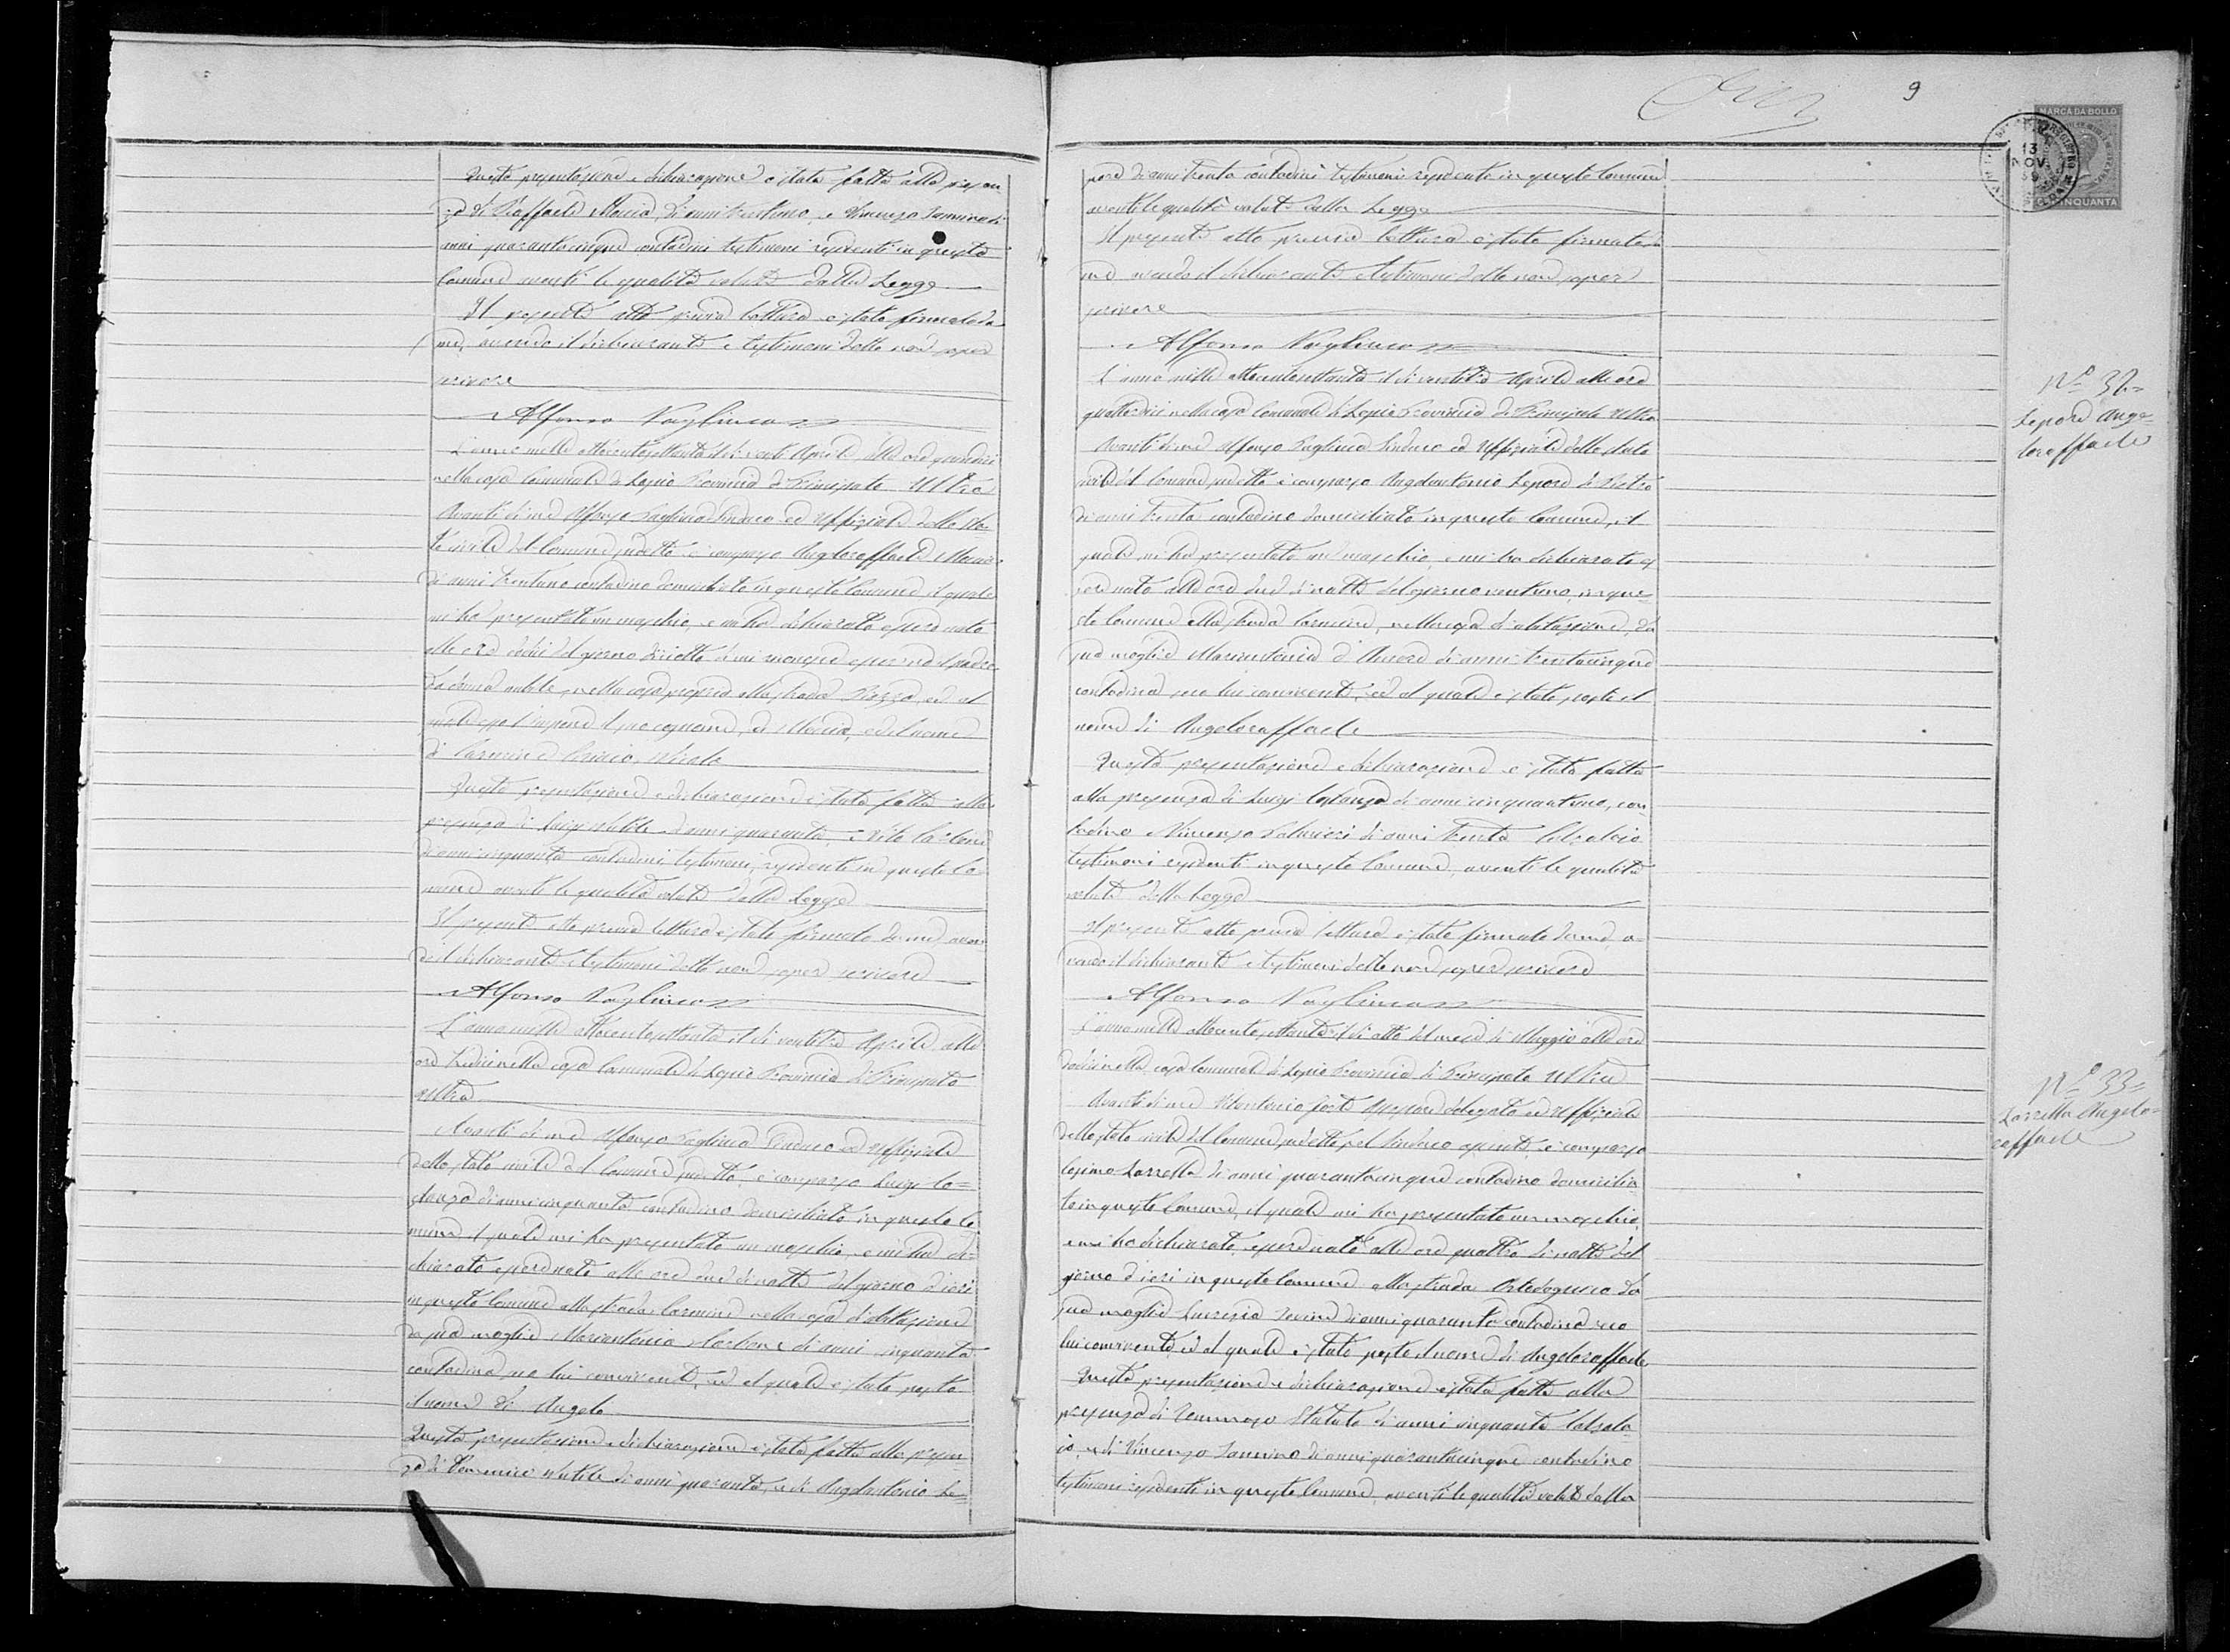 Questa presentazione e dichiarazione è stata fatta alla presen-
za di Raffaele Maccia di anni trentuno, e Vincenzo Iannino di
anni quarantacinque contadini testimoni residenti in questo
Comune aventi le qualità volute dalla Legge
Il presente atto previa lettura è stato firmato da
me, avendo il dichiarante e testimoni detto non saper
scrivere
Alfonso Vagliuca
L'anno mille ottocentosettanta il dì venti Aprile, alle ore quindici
nella casa Comunale di Lapio Provincia di Principato Ultra
Avanti di me Alfonso Vagliuca Sindaco ed Uffiziale dello sta-
to civile del Comune suddetto è comparso Angeloraffaele Maccia
di anni trentuno contadino domiciliato in questo Comune il quale
mi ha presentato un maschio, e mi ha dichiarato essere nato
alle ore dodici del giorno diciotto di
nella casa propria alla strada Piazza, ed al
quale esso impone il suo cognome di Maccia, ed il nome
di Carmine
Questa presentazione e dichiarazione è stata fatta alla
presenza di Luigi di anni quaranta, e Vito Carbone
di anni cinquanta contadini testimoni, residenti in questo Co-
mune aventi le qualità volute dalla Legge
Il presente atto previa lettura è stato firmato da me, aven-
do il dichiarante e testimoni detto non saper scrivere
Alfonso Vagliuca
L'anno mille ottocentosettanta il dì ventitre Aprile alle
ore tredici nella casa Comunale di Lapio Provincia di Principato
Ultra
Avanti di me Alfonso Vagliuca Sindaco ed Uffiziale
dello stato civile del Comune suddetto, è comparso Luigi Co=
stanza di anni cinquanta contadino domiciliato in questo Co
mune il quale mi ha presentato un maschio, e mi ha di=
chiarato essere nato alle ore due di notte del giorno d'ieri
in questo Comune alla strada Carmine nella casa d'abitazione
da sua moglie Mariantonia Carbone di anni cinquanta
contadina seco lui convivente, ed al quale è stato posto
il nome di Angelo
Questa presentazione e dichiarazione è stata fatta alla presen-
za di di anni quaranta, e di Angelantonio Le=
9
MARCA DA BOLLO
13
NOV.
C. CINQUANTA
pore di anni trenta contadini testimoni residenti in questo Comune
aventi le qualità volute dalla Legge
Il presente atto previa lettura è stato firmato da
me avendo il dichiarante e testimoni detto non saper
scrivere
Alfonso Vagliuca
L'anno mille ottocentosettanta il dì ventitre Aprile alle ore
quattordici nella casa Comunale di Lapio Provincia di Principato Ultra
Avanti di me Alfonso Vagliuca Sindaco ed Uffiziale dello stato
civile del Comune suddetto è comparso Angelantonio Lepore di Pietro
di anni trenta contadino domiciliato in questo Comune, il
quale mi ha presentato un maschio, e mi ha dichiarato es
sere nato alle ore due di notte del giorno ventuno, in que-
sto Comune alla strada Carmine, nella casa di abitazione, da
sua moglie Mariantonia d'Amore di anni trentacinque
contadina seco lui convivente, ed al quale è stato posto il
nome di Angeloraffaele
Questa presentazione e dichiarazione è stata fatta
alla presenza di Luigi Costanza di anni cinquantuno, con
tadino e Vincenzo di anni trenta Calzolaio
testimoni residenti in questo Comune, aventi le qualità
volute dalla Legge
Il presente atto previa lettura è stato firmato da me, a-
vendo il dichiarante e testimoni detto non saper scrivere
Alfonso Vagliuca
L'anno mille ottocentosettanta il dì otto del mese di Maggio alle ore
dodici nella casa Comunale di Lapio Provincia di Principato Ultra
Avanti di me Assessore delegato ed Uffiziale
dello stato civile del Comune suddetto pel Sindaco assente, è comparso
Cosimo Zarrella di anni quarantacinque contadino domicilia-
to in questo Comune, il quale mi ha presentato un maschio,
e mi ha dichiarato essere nato alle ore quattro di notte del
giorno d'ieri in questo Comune alla strada da
sua moglie Lucrezia di anni quaranta contadina seco
lui convivente, ed al quale è stato posto il nome di Angeloraffaele
Questa presentazione e dichiarazione è stata fatta alla
presenza di Tommaso Statuto di anni cinquanta Calzola-
io, e di Vincenzo Iannino di anni quarantacinque contadino
testimoni residenti in questo Comune, aventi le qualità volute dalla
N.º 32=
Lepore Ange-
loraffaele
N.º 33=
Zarrella Angelo=
raffaele